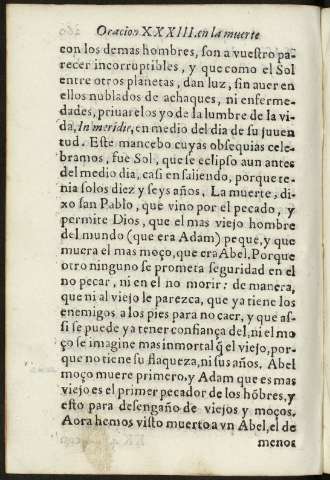 Oracion XXXIII. en la muerte
con los demas hombres, son a vuestro pa-
recer incorruptibles, y que como el Sol
entre otros planetas, dan luz, sin auer en
ellos nublados de achaques, ni enferme-
dades, priuarelos yo de la lumbre de la vi-
da, In meridie, en medio del dia de su juuen
tud. Este mancebo cuyas obsequias cele-
bramos, fue Sol, que se eclipso aun antes
del medio dia, casi en saliendo, porque te-
nia solos diez y seys años. La muerte, di-
xo san Pablo, que vino por el pecado, y
permite Dios, que el mas viejo hombre
del mundo (que era Adam) peque, y que
muera el mas moço, que era Abel. Porque
otro ninguno se prometa seguridad en el
no pecar, ni en el no morir: de manera,
que ni al viejo le parezca, que ya tiene los
enemigos a los pies para no caer, y que as-
si se puede ya tener confiança del, ni el mo
ço se imagine mas inmortal q̃ el viejo, por-
que no tiene su flaqueza, ni sus años. Abel
moço muere primero, y Adam que es mas
viejo es el primer pecador de los hõbres, y
esto para desengaño de viejos y moços.
Aora hemos visto muerto a vn Abel, el de
menos